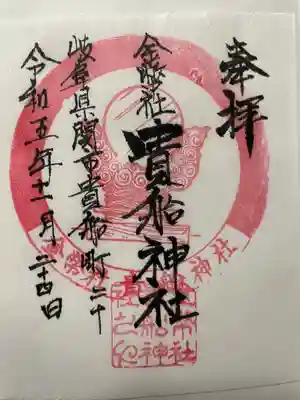 奉拝
金幣社
貴船神社
岐阜県関市貴船町二十
令和五年十一月二十四日